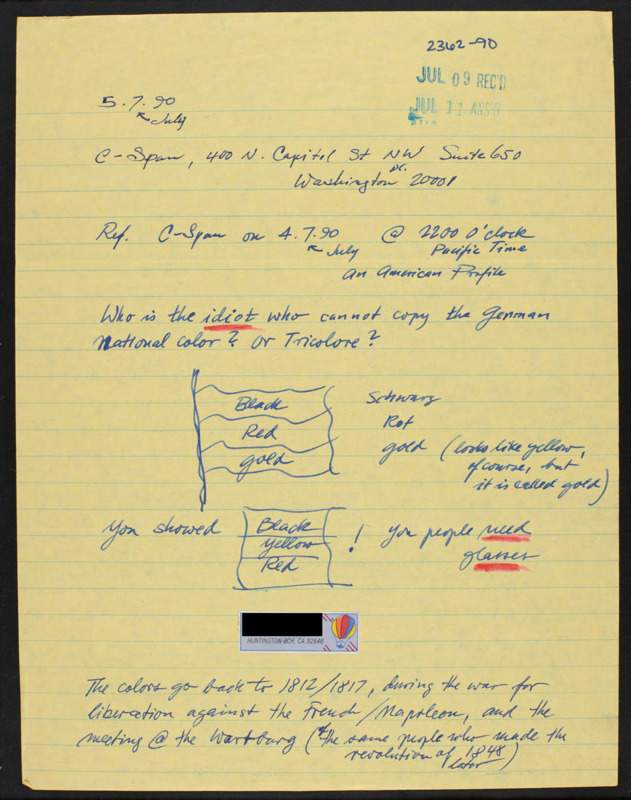 2362-90
JUL 09 REC'D
JUL 11 ANS'D
5.7.90
July
C-Span, 400 N. Capitol St NW Suite 650
Washington DC. 20001
Ref. C-Span on 4.7.90 @ 2200 O'clock
July Pacific Time
an American Profile
Who is the idiot who cannot copy the German
National Color? or Tricolore?
Black
Red
gold
Schwarz
Rot
gold (looks like yellow,
of course, but
it is called gold)
You showed
Black
yellow
Red
! You people need
glasses
HUNTINGTON BCH, CA 92646
The colors go back to 1812/1817, during the war for
liberation against the French/Napoleon, and the
meeting @ the Wartburg (the same people who made the
revolution of 1848
later)